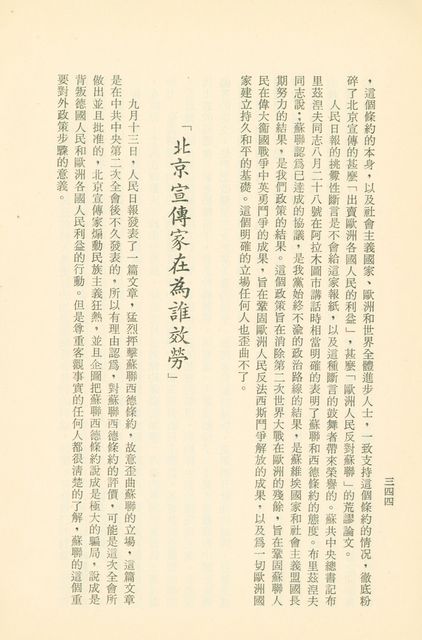 三四四
，這個條約的本身，以及社會主義國家、歐洲和世界全體進步人士，一致支持這個條約的情况，徹底粉
碎了北京宣傳的甚麼「出賣歐洲各國人民的利益」，甚麼「歐洲人民反對蘇聯」的荒謬論文。
人民日報的挑釁性斷言是不會給這家報紙，以及這種斷言的鼓舞者帶來榮譽的。蘇共中央總書記布
里茲涅夫同志八月二十八號在阿拉木圖市講話時相當明確的表明了蘇聯和西德條約的態度。布里茲涅夫
同志說：蘇聯認爲已達成的協議，是我黨始終不渝的政治路線的結果，是蘇維埃國家和社會主義盟國長
期努力的結果，是我們政策的結果。這個政策旨在消除第二次世界大戰在歐洲的殘餘，旨在鞏固蘇聯人
民在偉大衞國戰爭中英勇鬥爭的成果，旨在鞏固歐洲人民反法西斯鬥爭解放的成果，以及爲一切歐洲國
家建立持久和平的基礎。這個明確的立場任何人也歪曲不了。
「北京宣傳家在為誰效勞」
九月十三日，人民日報發表了一篇文章，猛烈抨擊蘇聯西德條約，故意歪曲蘇聯的立場，這篇文章
是在中共中央第二次全會後不久發表的，所以有理由認爲，對蘇聯西德條約的評價，可能是這次全會所
做出並且批准的，北京宣傳家煽動民族主義狂熱，並且企圖把蘇聯西德條約說成是極大的騙局，說成是
背叛德國人民和歐洲各國人民利益的行動。但是尊重客觀事實的任何人都很清楚的了解，蘇聯的這個重
要對外政策步驟的意義。